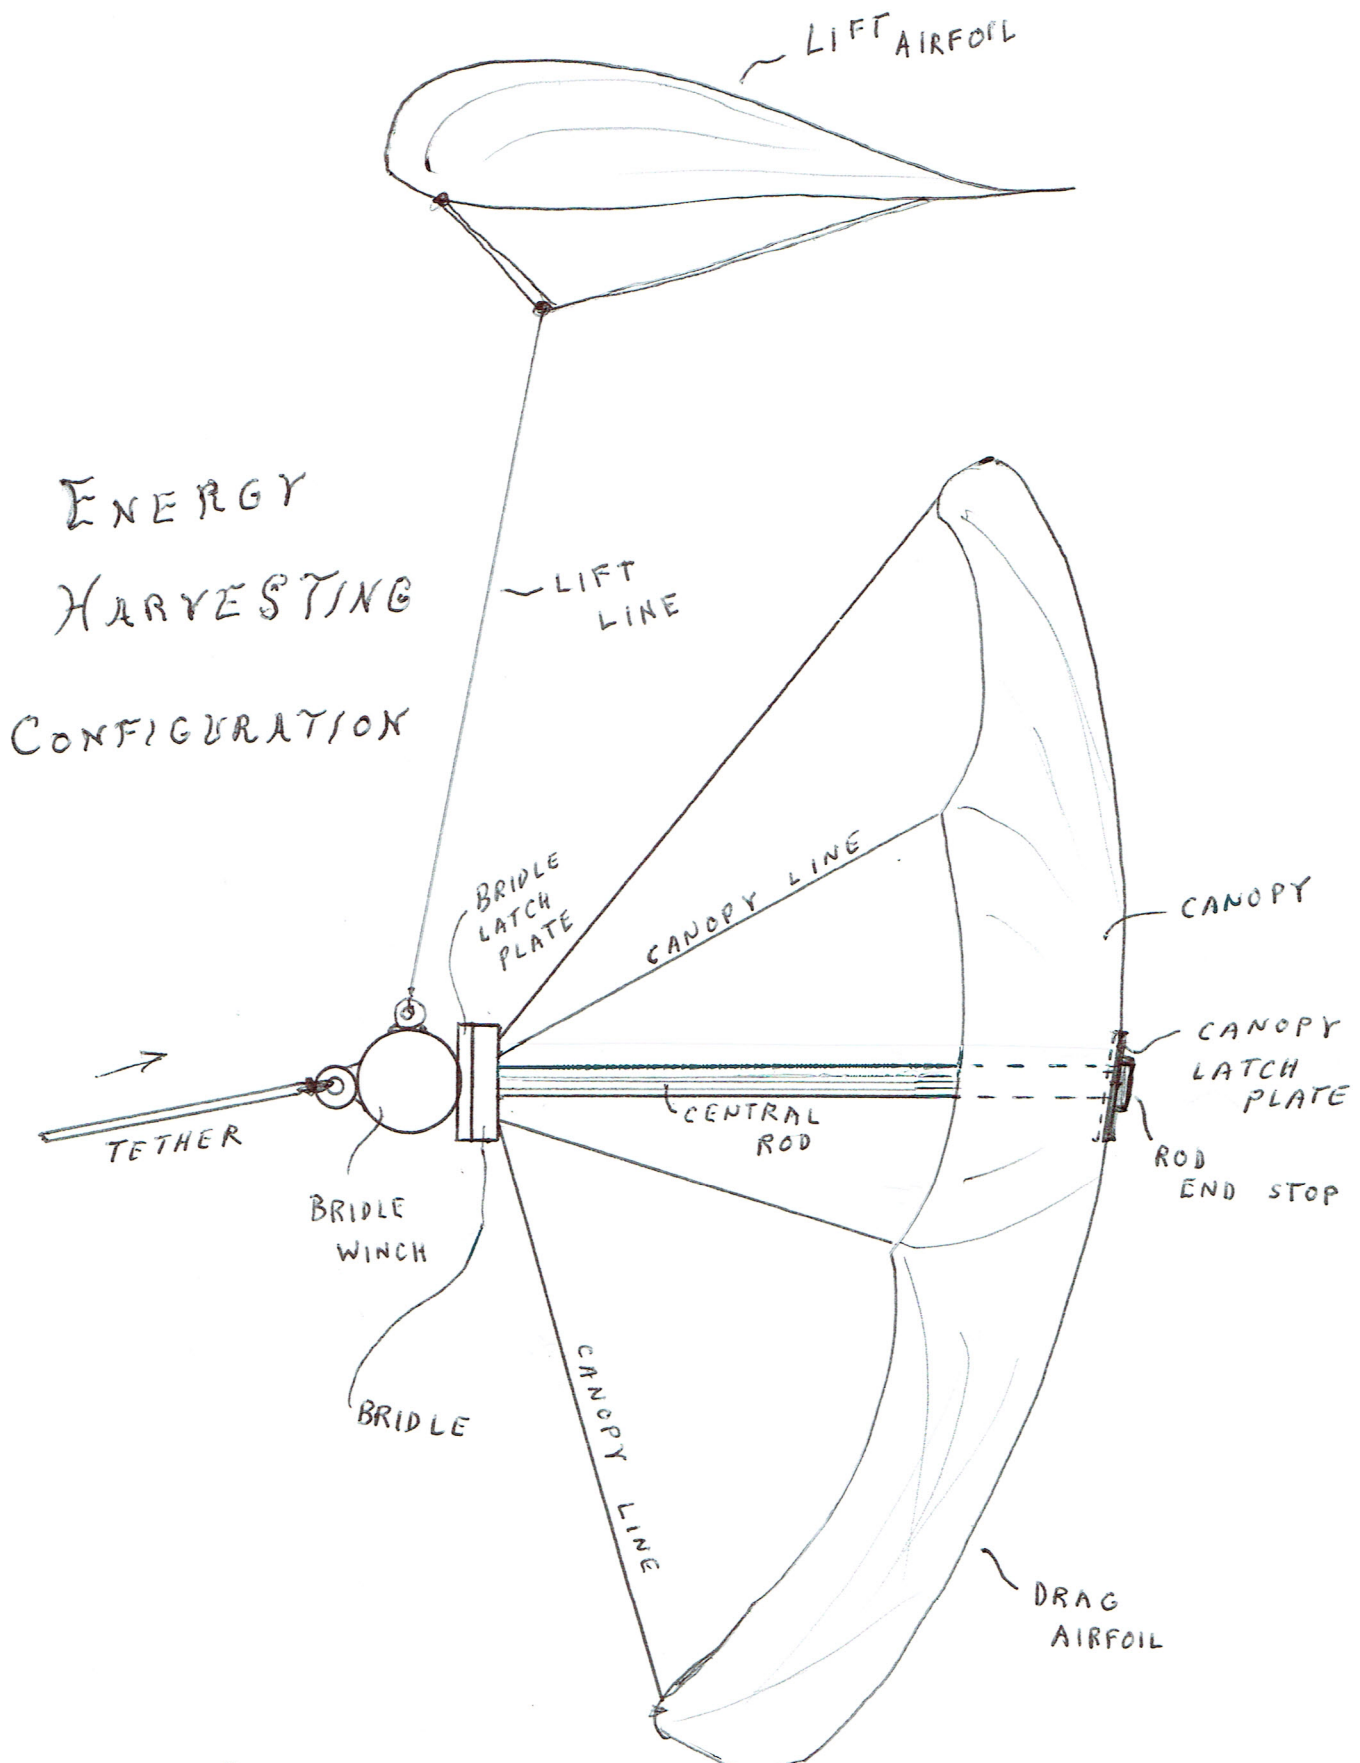 LIFT AIRFOIL
ENERGY
HARVESTING
CONFIGURATION
LIFT
LINE
BRIDLE
LATCH
PLATE
CANOPY LINE
CANOPY
CANOPY
LATCH
PLATE
ROD
END STOP
CENTRAL
ROD
TETHER
BRIDLE
WINCH
BRIDLE
CANOPY LINE
DRAG
AIRFOIL